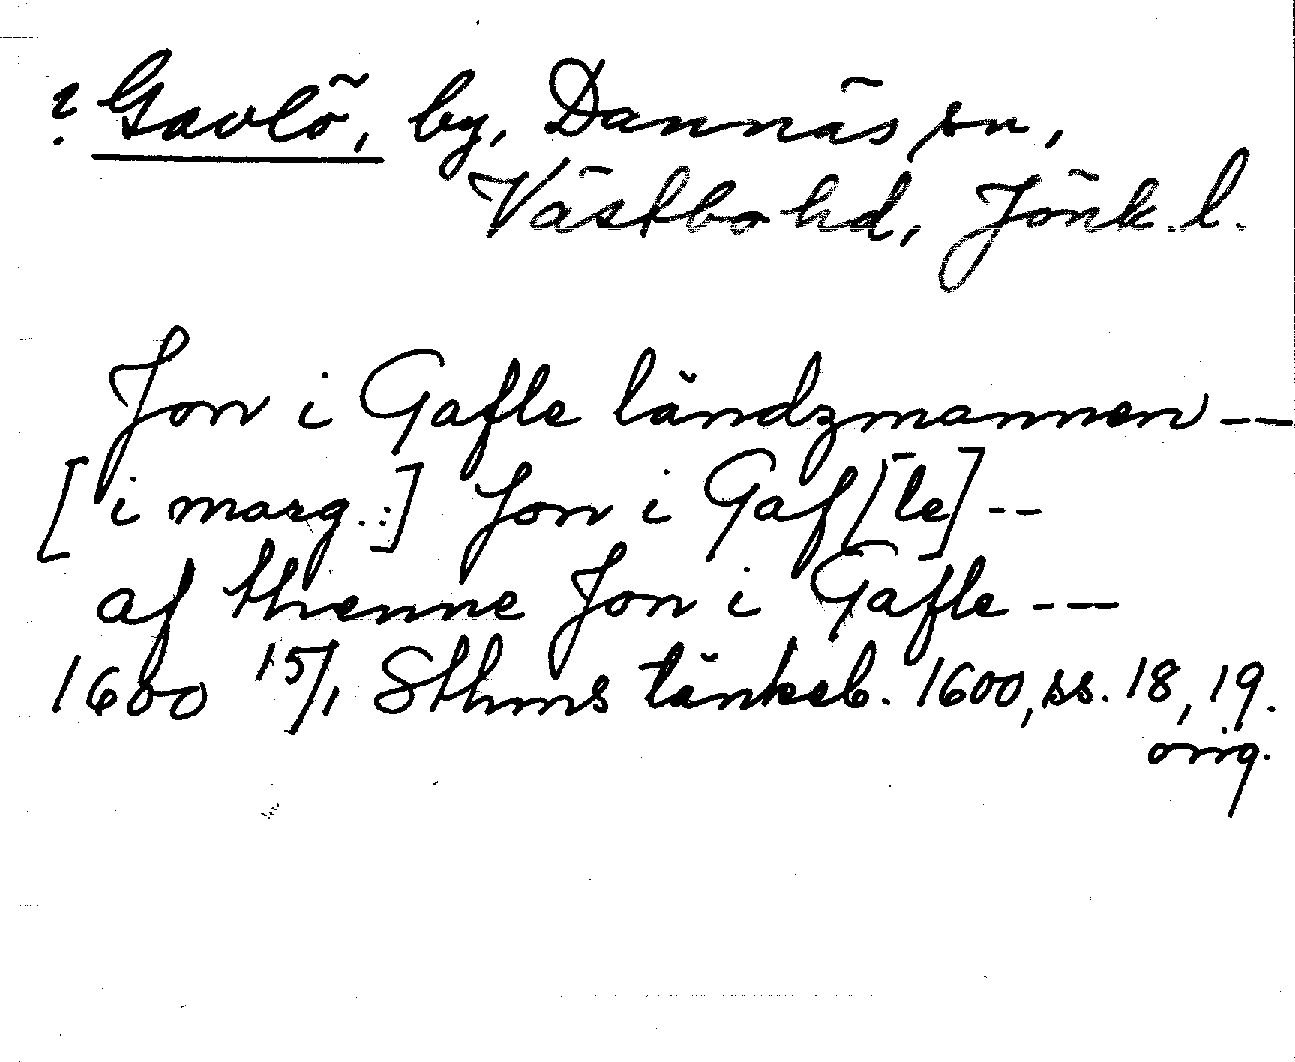 ? Gavlö, by, Dannäs sn,
Västbo hd, Jönk. l.
Jon i Gafle ländzmannen --
[i marg.:] Jon i Gaf[le] --
af thenne Jon i Gafle ---
1600 15/1 Sthms tänkeb. 1600, ss. 18, 19.
orig.